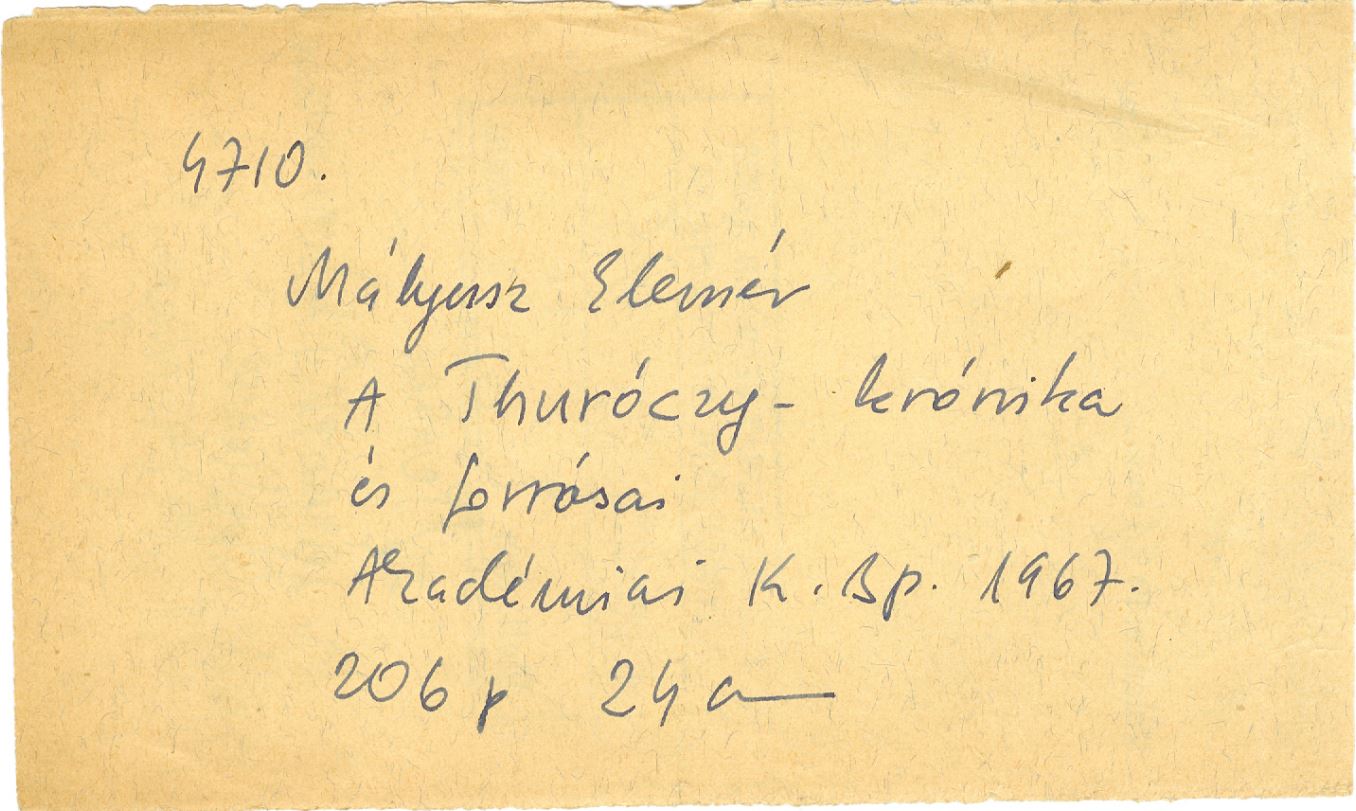 4710.
Mályusz Elemér
A Thuróczy- krónika
és forrásai
Akadémiai K. Bp. 1967.
206 p 24 cm